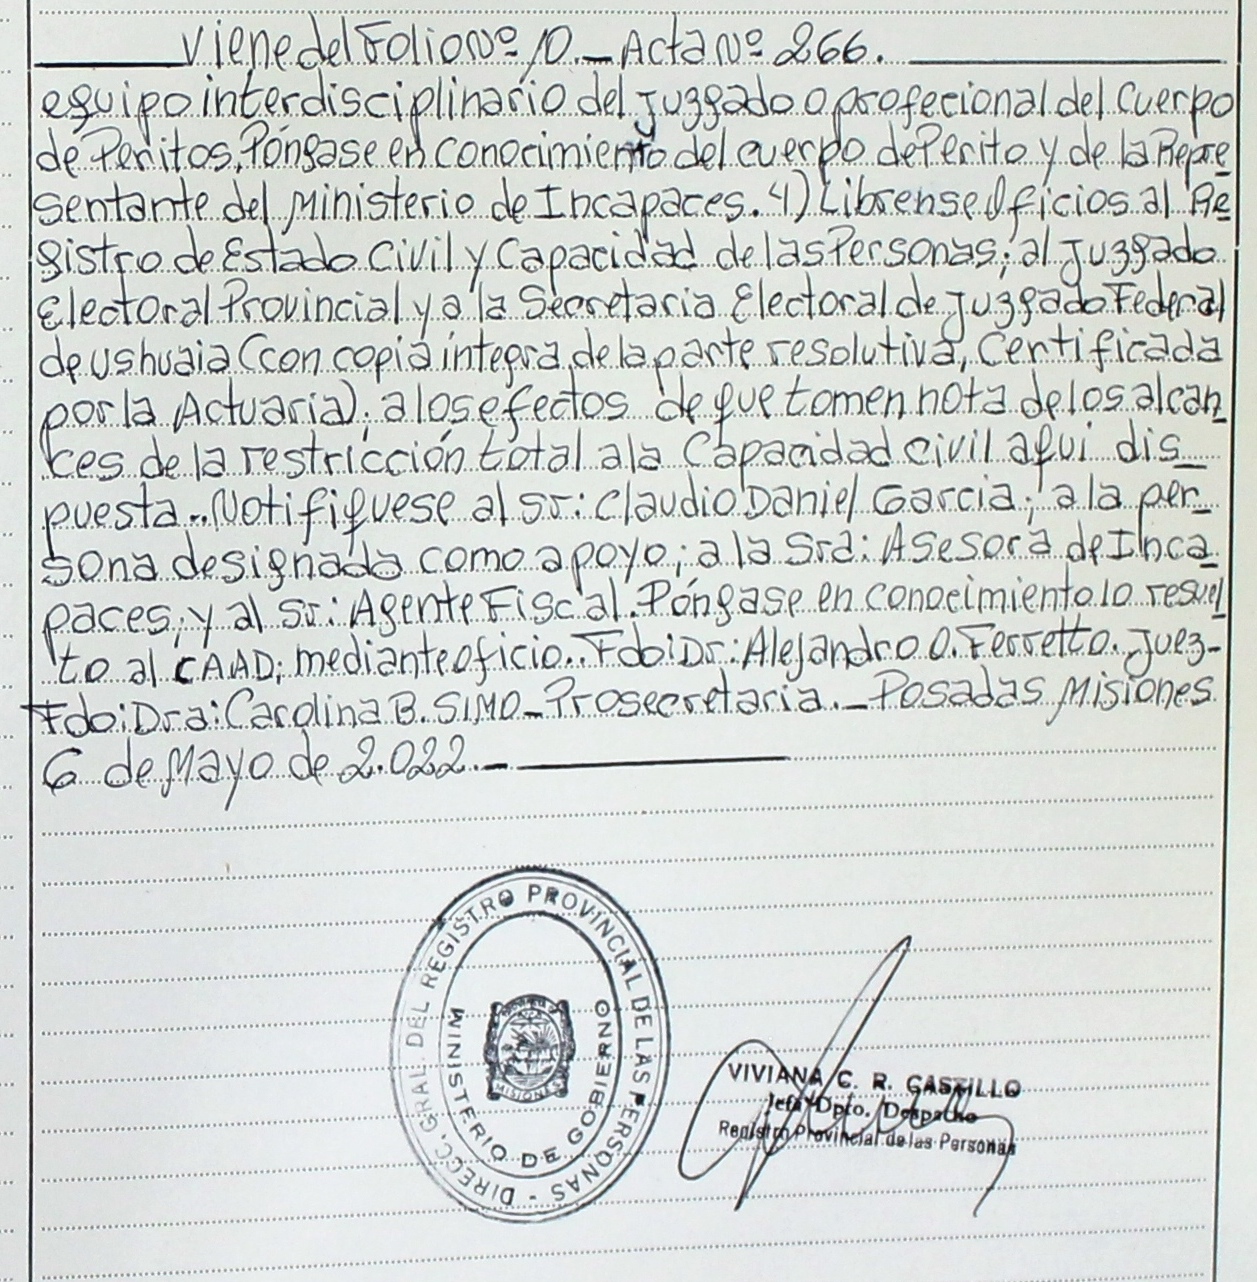 Viene del Folio Nº 10._ Acta Nº 266.
equipo interdisciplinario del Juzgado o profecional del Cuerpo
de Peritos, Póngase en conocimiento del cuerpo de Perito y de la Repre
sentante del Ministerio de Incapaces. 4) Librense Oficios al Re
gistro de Estado Civil y Capacidad de las Personas; al Juzgado
Electoral Provincial y a la Secretaria Electoral de Juzgado Federal
de ushuaia (con copia integra, de la parte resolutiva, Certificada
por la Actuaria), a los efectos de que tomen nota de los alcan_
ces de la restricción total a la Capacidad civil aquí dis_
puesta.. Notifiquese al sr: Claudio Daniel Garcia; a la per_
sona designada como apoyo; a la Sra: Asesora de Inca_
paces; y al sr: Agente Fiscal. Póngase en conocimiento lo resuel
to al CAAD; mediante oficio.. Fdo: Dr: Alejandro O. Ferretto. Juez-
Fdo: Dra: Carolina B. SIMO_ Prosecretaria._ Posadas Misiones
6 de Mayo de 2.022._
DIRECC. GRAL. DEL REGISTRO PROVINCIAL DE LAS PERSONAS -
MINISTERIO DE GOBIERNO
MISIONES
VIVIANA C. R. CASTILLO
Jefa Dpto. Despacho
Registro Provincial de las Personas